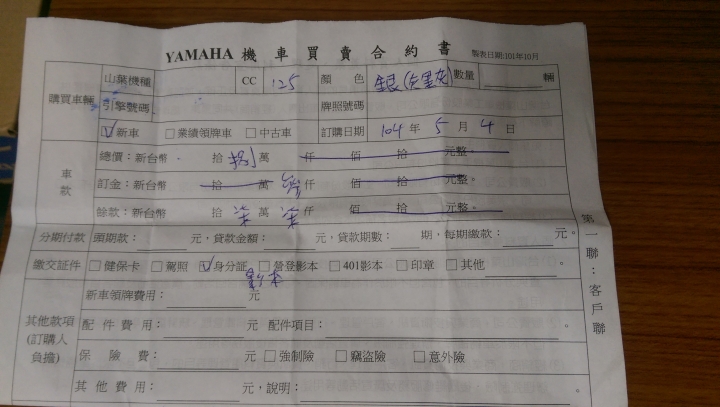 YAMAHA 機車買賣合約書 製表日期:101年10月
購買車輛 山葉機種 CC 125 顏色 銀( 數量 輛
引擎號碼 牌照號碼
☑新車 □業績領牌車 □中古車 訂購日期 104年5月4日
車款 總價：新台幣 拾捌萬 仟 佰 拾 元整。
訂金：新台幣 拾 萬 仟 佰 拾 元整。
餘款：新台幣 拾柒萬柒仟 佰 拾 元整。
分期付款 頭期款： 元，貸款金額： 元，貸款期數： 期，每期繳款： 元。
繳交証件 □健保卡 □駕照 ☑身分証 □營登影本 □401影本 □印章 □其他 。
影本
其他款項(訂購人負擔) 新車領牌費用： 元
配件費用： 元 配件項目： 。
保險費： 元 □強制險 □竊盜險 □意外險
其他費用： 元，說明： 。
第一聯：客戶聯